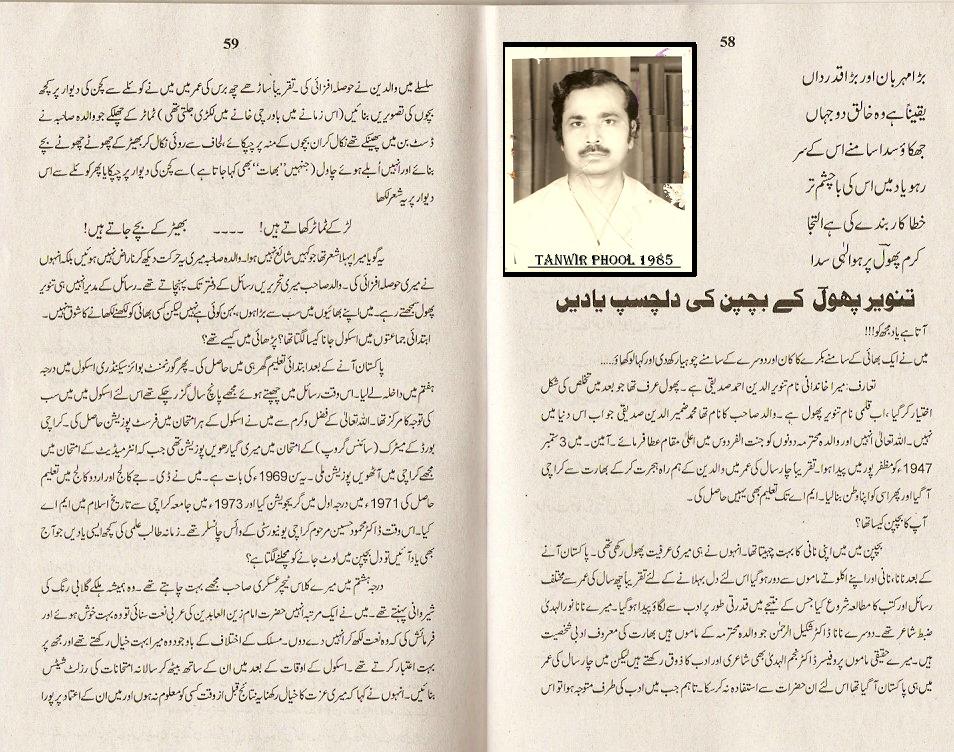 58
بڑا مہربان اور بڑا قدرداں
یقیناً ہے وہ خالق دو جہاں
جھکاؤ سدا سامنے اس کے سر
رہو یاد میں اس کی با چشم تر
خطا کار بندے کی ہے التجا
کرم پھولؔ پر ہو الٰہی سدا
TANWIR PHOOL 1985
تنویر پھولؔ کے بچپن کی دلچسپ یادیں
آتا ہے یاد مجھ کو!!!
میں نے ایک بھائی کے سامنے بکرے کا کان اور دوسرے کے سامنے چوہا رکھ دی اور کہا لو کھاؤ....
تعارف: میرا خاندانی نام تنویر الدین احمد صدیقی ہے۔ پھول عرف تھا جو بعد میں تخلص کی شکل
اختیار کر گیا، اب قلمی نام تنویر پھول ہے۔ والد صاحب کا نام تھا محمد ضمیر الدین صدیقی جو اب اس دنیا میں
نہیں۔ اللہ تعالیٰ انہیں اور والدہ محترمہ دونوں کو جنت الفردوس میں اعلیٰ مقام عطا فرمائے۔ آمین۔ میں 3 ستمبر
1947ء کو مظفر پور میں پیدا ہوا۔ تقریباً چار سال کی عمر میں والدین کے ہم راہ ہجرت کر کے بھارت سے کراچی
آ گیا اور پھر اسی کو اپنا وطن بنا لیا۔ ایم اے تک تعلیم بھی یہیں حاصل کی۔
آپ کا بچپن کیسا تھا؟
بچپن میں میں اپنی نانی کا بہت چہیتا تھا۔ انہوں نے ہی میری عرفیت پھول رکھی تھی۔ پاکستان آنے
کے بعد نانا، نانی اور اپنے اکلوتے ماموں سے دور ہو گیا اس لئے دل بہلانے کے لئے تقریباً چھ سال کی عمر سے مختلف
رسائل اور کتب کا مطالعہ شروع کیا جس کے نتیجے میں قدرتی طور پر ادب سے لگاؤ پیدا ہو گیا۔ میرے نانا نور الہدیٰ
ضبط شاعر تھے۔ دوسرے نانا ڈاکٹر شکیل الرحمٰن جو والدہ محترمہ کے ماموں ہیں بھارت کی معروف ادبی شخصیت
ہیں۔ میرے حقیقی ماموں پروفیسر ڈاکٹر نجم الہدیٰ بھی شاعری اور ادب کا ذوق رکھتے ہیں لیکن میں چار سال کی عمر
میں ہی پاکستان آ گیا تھا اس لئے ان حضرات سے استفادہ نہ کر سکا۔ تاہم جب میں ادب کی طرف متوجہ ہوا تو اس
59
سلسلے میں والدین نے حوصلہ افزائی کی۔ تقریباً ساڑھے چھ برس کی عمر میں میں نے کوئلے سے کچن کی دیوار پر کچھ
بچوں کی تصویریں بنائیں (اس زمانے میں باورچی خانے میں لکڑی جلتی تھی) ٹماٹر کے چھلکے جو والدہ صاحبہ نے
ڈسٹ بن میں پھینکے تھے نکال کر ان بچوں کے منہ پر چپکائے، لحاف سے روئی نکال کر بھیڑ کے چھوٹے چھوٹے بچے
بنائے اور انہیں اُبلے ہوئے چاول (جنہیں ''بھات'' بھی کہا جاتا ہے) سے کچن کی دیوار پر چپکایا پھر کوئلے سے اس
دیوار پر یہ شعر لکھا
لڑکے ٹماٹر کھاتے ہیں! ---- بھیڑ کے بچے جاتے ہیں!
یہ گویا میرا پہلا شعر تھا جو کہیں شائع نہیں ہوا۔ والدہ صاحبہ میری یہ حرکت دیکھ کر ناراض نہیں ہوئیں بلکہ انہوں
نے میری حوصلہ افزائی کی۔ والد صاحب میری تحریریں رسائل کے دفتر تک پہنچاتے تھے۔ رسائل کے مدیر انہیں ہی تنویر
پھول سمجھتے رہے۔ میں اپنے بھائیوں میں سب سے بڑا ہوں، بہن کوئی ہے نہیں لیکن کسی بھائی کو لکھنے لکھانے کا شوق نہیں۔
ابتدائی جماعتوں میں اسکول جانا کیسا لگتا تھا؟ پڑھائی میں کیسے تھے؟
پاکستان آنے کے بعد ابتدائی تعلیم گھر ہی میں حاصل کی۔ پھر گورنمنٹ بوائز سیکنڈری اسکول میں درجہ
ہفتم میں داخلہ لے لیا۔ اس وقت رسائل میں چھپتے ہوئے مجھے پانچ سال گزر چکے تھے اس لئے اسکول میں میں سب
کی توجہ کا مرکز تھا۔ اللہ تعالیٰ کے فضل و کرم سے میں نے اسکول کے ہر امتحان میں فرسٹ پوزیشن حاصل کی۔ کراچی
بورڈ کے میٹرک (سائنس گروپ) کے امتحان میں میری گیارھویں پوزیشن تھی جب کہ انٹرمیڈیٹ کے امتحان میں
مجھے کراچی میں آٹھویں پوزیشن ملی۔ یہ سن 1969ء کی بات ہے۔ میں نے ڈی۔ جے کالج اور اردو کالج میں تعلیم
حاصل کی 1971ء میں درجہ اول میں گریجویشن کیا اور 1973ء میں جامعہ کراچی سے تاریخ اسلام میں ایم اے
کیا۔ اس وقت ڈاکٹر محمود حسین مرحوم کراچی یونیورسٹی کے وائس چانسلر تھے۔ زمانہ طالب علمی کی کچھ ایسی یادیں جو آج
بھی یاد آئیں تو دل بچپن میں لوٹ جانے کو مچلنے لگتا ہے؟
درجہ ہشتم میں میرے کلاس ٹیچر عسکری صاحب مجھے بہت چاہتے تھے۔ وہ ہمیشہ ہلکے گلابی رنگ کی
شیروانی پہنتے تھے۔ میں نے ایک مرتبہ انہیں حضرت امام زین العابدین کی عربی نعت سنائی تو وہ بہت خوش ہوئے اور
فرمائش کی کہ وہ نعت لکھ کر انہیں دے دوں۔ مسلک کے اختلاف کے باوجود وہ میرا بہت خیال رکھتے تھے اور مجھ پر
بہت اعتبار کرتے تھے۔ اسکول کے اوقات کے بعد میں ان کے ساتھ بیٹھ کر سالانہ امتحانات کی رزلٹ شیٹس
بنائیں۔ انہوں نے کہا کہ میری عزت کا خیال رکھنا، یہ نتائج قبل از وقت کسی کو معلوم نہ ہوں اور میں ان کے اعتماد پر پورا